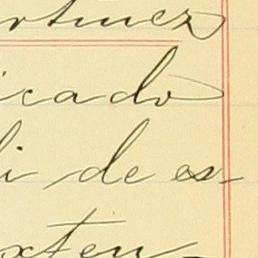 rtinez
icado
li de es-
xten-